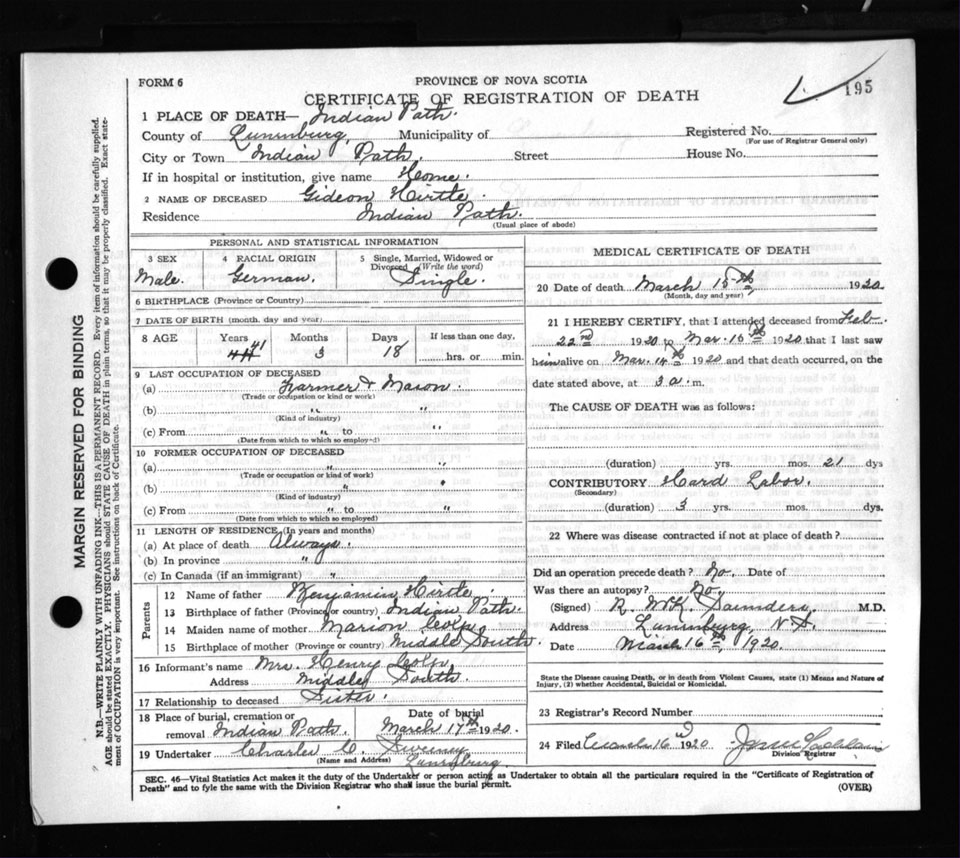 FORM 6
PROVINCE OF NOVA SCOTIA
CERTIFICATE OF REGISTRATION OF DEATH
195
1 PLACE OF DEATH— Indian Path.
County of Lunenburg, Municipality of
Registered No.
(For use of Registrar General only)
City or Town Indian Path. Street House No.
If in hospital or institution, give name Home.
2 NAME OF DECEASED Gideon Hirtle.
Residence Indian Path.
(Usual place of abode)
PERSONAL AND STATISTICAL INFORMATION
3 SEX 4 RACIAL ORIGIN 5 Single, Married, Widowed or Divorced (Write the word)
Male. German. Single.
6 BIRTHPLACE (Province or Country)
7 DATE OF BIRTH (month, day and year)
8 AGE Years Months Days If less than one day,
44 41 3 18 hrs. or min.
9 LAST OCCUPATION OF DECEASED
(a) Farmer & Mason.
(Trade or occupation or kind of work)
(b) " "
(Kind of industry)
(c) From " to "
(Date from which to which so employed)
10 FORMER OCCUPATION OF DECEASED
(a) "
(Trade or occupation or kind of work)
(b) "
(Kind of industry)
(c) From " to "
(Date from which to which so employed)
11 LENGTH OF RESIDENCE (In years and months)
(a) At place of death Always.
(b) In province "
(c) In Canada (if an immigrant) "
Parents
12 Name of father Benjamin Hirtle.
13 Birthplace of father (Province or country) Indian Path.
14 Maiden name of mother Marion
15 Birthplace of mother (Province or country) Middle South.
16 Informant's name Mrs. Henry
Address Middle South.
17 Relationship to deceased Sister
18 Place of burial, cremation or removal Indian Path. Date of burial March 17th 1920.
19 Undertaker Charles C. Sweeny
(Name and Address) Lunenburg.
MEDICAL CERTIFICATE OF DEATH
20 Date of death March 15th, 1920
(Month, day and year)
21 I HEREBY CERTIFY, that I attended deceased from Feb.
22nd 1920 to Mar. 15th 1920 that I last saw
him alive on Mar. 14th 1920 and that death occurred, on the
date stated above, at 3 a. m.
The CAUSE OF DEATH was as follows:
(duration) yrs. mos. 21 dys
CONTRIBUTORY Hard Labor.
(Secondary)
(duration) 3 yrs. mos. dys.
22 Where was disease contracted if not at place of death?
Did an operation precede death? No. Date of
Was there an autopsy? No.
(Signed) R. McK. Saunders M.D.
Address Lunenburg, N.S.
Date March 16th, 1920.
State the Disease causing Death, or in death from Violent Causes, state (1) Means and Nature of
Injury, (2) whether Accidental, Suicidal or Homicidal.
23 Registrar's Record Number
24 Filed March 16 1920
Division Registrar
SEC. 46—Vital Statistics Act makes it the duty of the Undertaker or person acting as Undertaker to obtain all the particulars required in the "Certificate of Registration of
Death" and to fyle the same with the Division Registrar who shall issue the burial permit. (OVER)
MARGIN RESERVED FOR BINDING
N.B.—WRITE PLAINLY WITH UNFADING INK—THIS IS A PERMANENT RECORD. Every item of information should be carefully supplied.
AGE should be stated EXACTLY. PHYSICIANS should STATE CAUSE OF DEATH in plain terms, so that it may be properly classified. Exact state-
ment of OCCUPATION is very important. See instructions on back of Certificate.